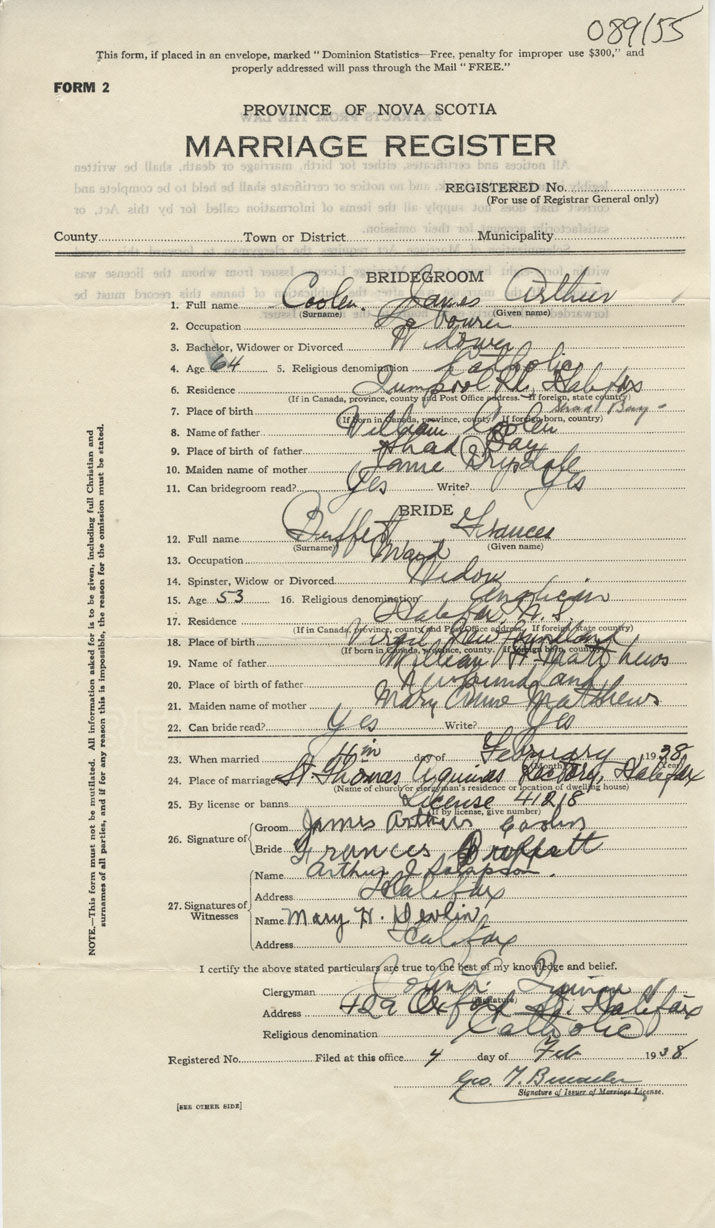 089/55
This form, if placed in an envelope, marked "Dominion Statistics—Free, penalty for improper use $300," and
properly addressed will pass through the Mail "FREE."
FORM 2
PROVINCE OF NOVA SCOTIA
MARRIAGE REGISTER
REGISTERED No.
(For use of Registrar General only)
County Town or District Municipality
BRIDEGROOM
1. Full name Coolen James Arthur
(Surname) (Given name)
2. Occupation Labourer
3. Bachelor, Widower or Divorced Widower
4. Age 64 5. Religious denomination Catholic
6. Residence Rd. Halifax
(If in Canada, province, county and Post Office address. If foreign, state country)
7. Place of birth Shad Bay
(If born in Canada, province, county. If foreign born, country)
8. Name of father William Coolen
9. Place of birth of father Shad Bay
10. Maiden name of mother Drysdale
11. Can bridegroom read? Yes Write? Yes
BRIDE
12. Full name Frances
(Surname) (Given name)
13. Occupation Maid
14. Spinster, Widow or Divorced Widow
15. Age 53 16. Religious denomination Anglican
17. Residence Halifax N.S.
(If in Canada, province, county and Post Office address. If foreign, state country)
18. Place of birth
(If born in Canada, province, county. If foreign born, country)
19. Name of father William H. Matthews
20. Place of birth of father Newfoundland
21. Maiden name of mother Mary Matthews
22. Can bride read? Yes Write? Yes
23. When married 4th day of February 1938
(Month) (Year)
24. Place of marriage St Thomas Aquinas Rectory, Halifax
(Name of church or clergyman's residence or location of dwelling house)
25. By license or banns License 41218
(If by license, give number)
26. Signature of
Groom James Arthur Coolen
Bride Frances
27. Signatures of Witnesses
Name Arthur J.
Address Halifax
Name Mary H. Devlin
Address Halifax
I certify the above stated particulars are true to the best of my knowledge and belief.
Clergyman John
(Signature)
Address 429 Oxford St. Halifax
Religious denomination Catholic
Registered No. Filed at this office 4 day of Feb 1938
Geo. T.
Signature of Issuer of Marriage License.
[SEE OTHER SIDE]
NOTE.—This form must not be mutilated. All information asked for is to be given, including full Christian and
surnames of all parties, and if for any reason this is impossible, the reason for the omission must be stated.